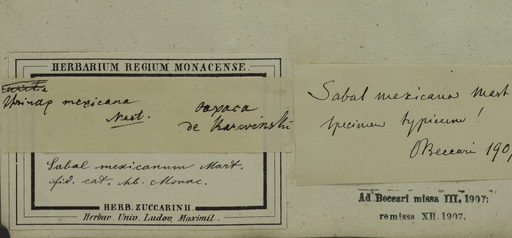 HERBARIUM REGIUM MONACENSE.
mexicana
Mart.
Oaxaca
de Karwinski
Sabal mexicanum Mart.
fid. cat. hb. Monac.
HERB. ZUCCARINII.
Herbar. Univ. Ludov. Maximil.
Sabal mexicana Mart
specimen typicum!
OBeccari 190
Ad Beccari missa III. 1907;
remissa XII. 1907.